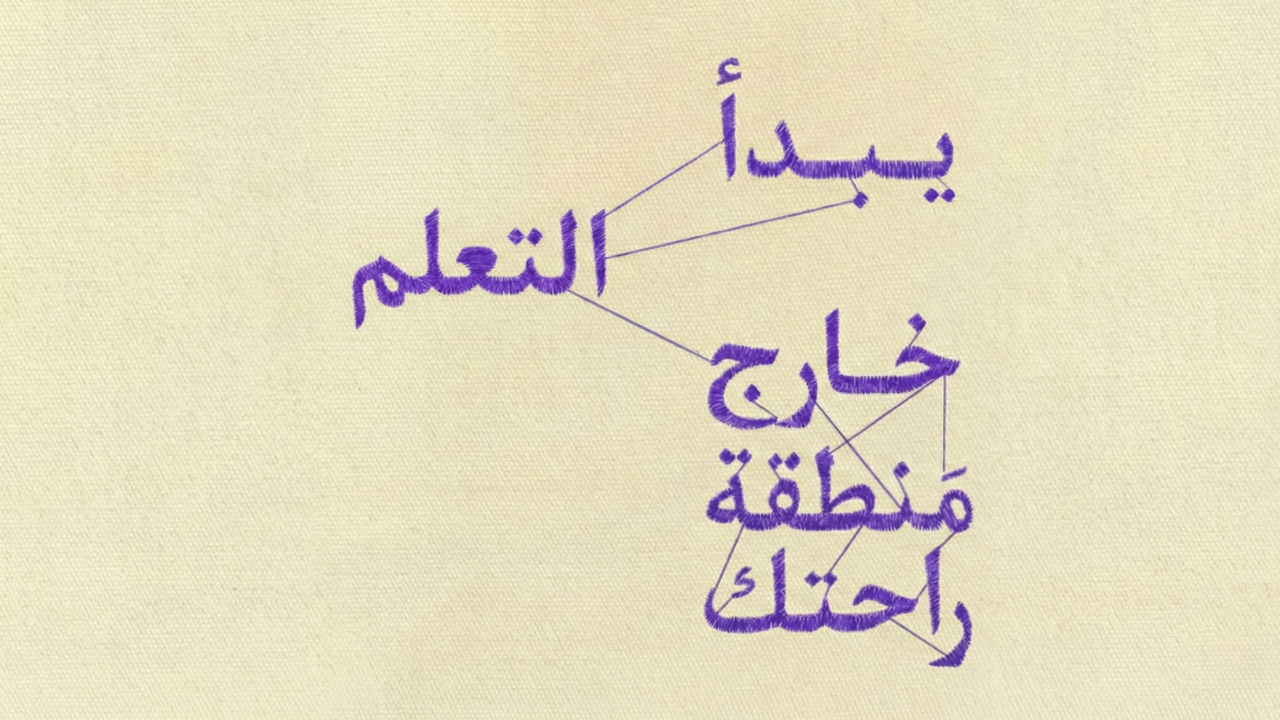 يبدأ
التعلم
خارج
مَنطقة
راحتك